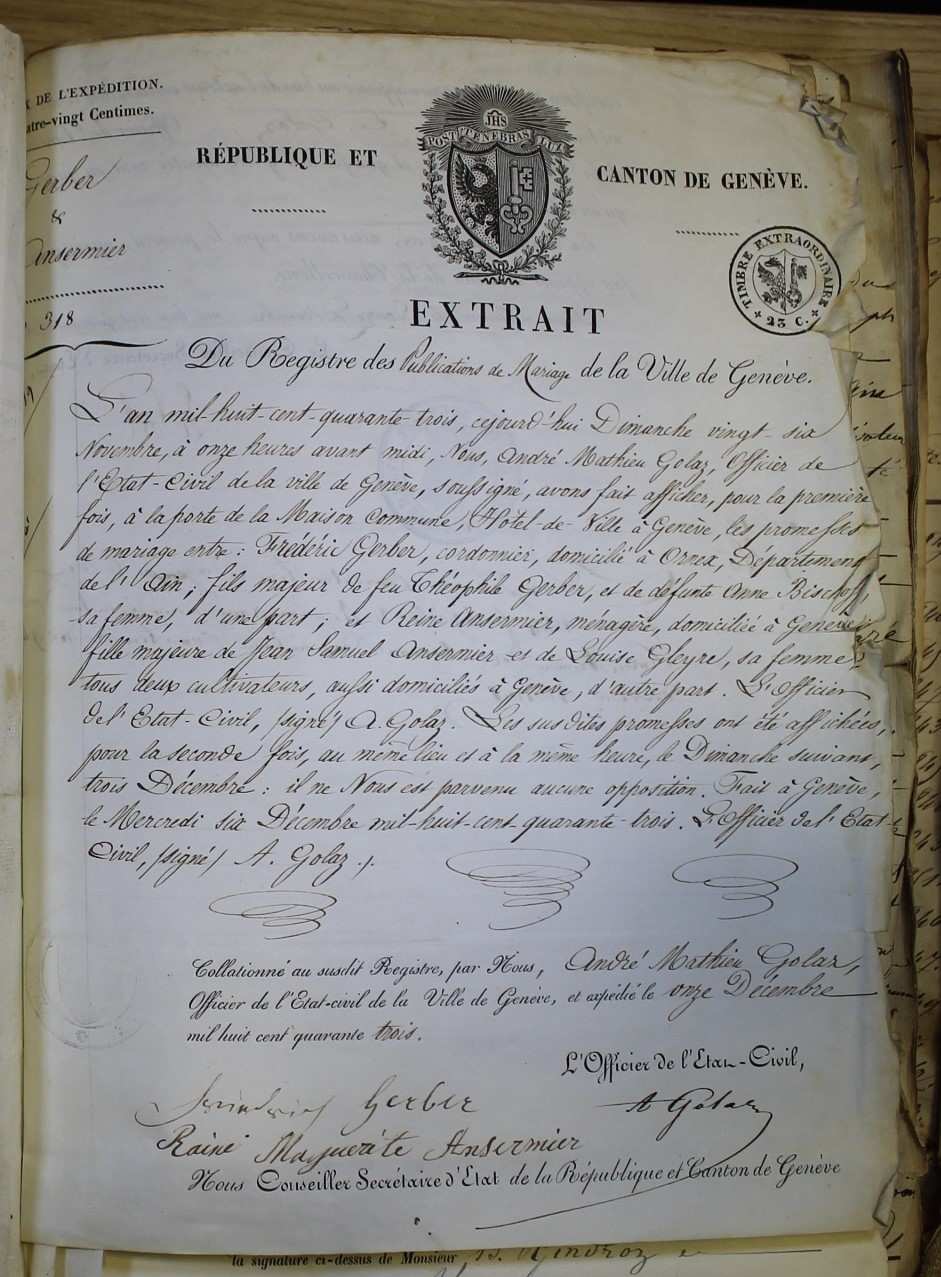 DE L'EXPÉDITION.
atre-vingt Centimes.
Gerber
&
Ansermier
318
JHS
POST TENEBRAS LUX
RÉPUBLIQUE ET
CANTON DE GENÈVE.
TIMBRE EXTRAORDINAIRE
23 C.
EXTRAIT
Du Registre des Publications de Mariage de la Ville de Genève.
L'an mil-huit-cent-quarante-trois, cejourd'hui Dimanche vingt-six
Novembre, à onze heures avant midi, Nous, André Mathieu Golaz, Officier de
l'Etat-Civil de la ville de Genève, soussigné, avons fait afficher, pour la première
fois, à la porte de la Maison Commune, Hôtel-de-Ville à Genève, les promesses
de mariage entre: Frédéric Gerber, cordonnier, domicilié à Ornex, Département
de l'Ain; fils majeur de feu Théophile Gerber, et de défunte Anne Bischoff,
sa femme, d'une part; et Reine Ansermier, ménagère, domiciliée à Genève,
fille majeure de Jean Samuel Ansermier et de Louise Gleyre, sa femme,
tous deux cultivateurs, aussi domiciliés à Genève, d'autre part. L'Officier
de l'Etat-Civil, (signé) A. Golaz. Les susdites promesses ont été affichées,
pour la seconde fois, au même lieu et à la même heure, le Dimanche suivant,
trois Décembre: il ne Nous est parvenu aucune opposition. Fait à Genève,
le Mercredi six Décembre mil-huit-cent-quarante-trois. L'Officier de l'Etat-
Civil, (signé) A. Golaz.
Collationné au susdit Registre, par Nous, André Mathieu Golaz,
Officier de l'Etat-civil de la Ville de Genève, et expédié le onze Décembre
mil huit cent quarante trois.
L'Officier de l'Etat-Civil,
A Golaz
Friedrich Gerber
Raine Marguerite Ansermier
Nous Conseiller Secrétaire d'Etat de la République et Canton de Genève
la signature ci-dessus de Monsieur